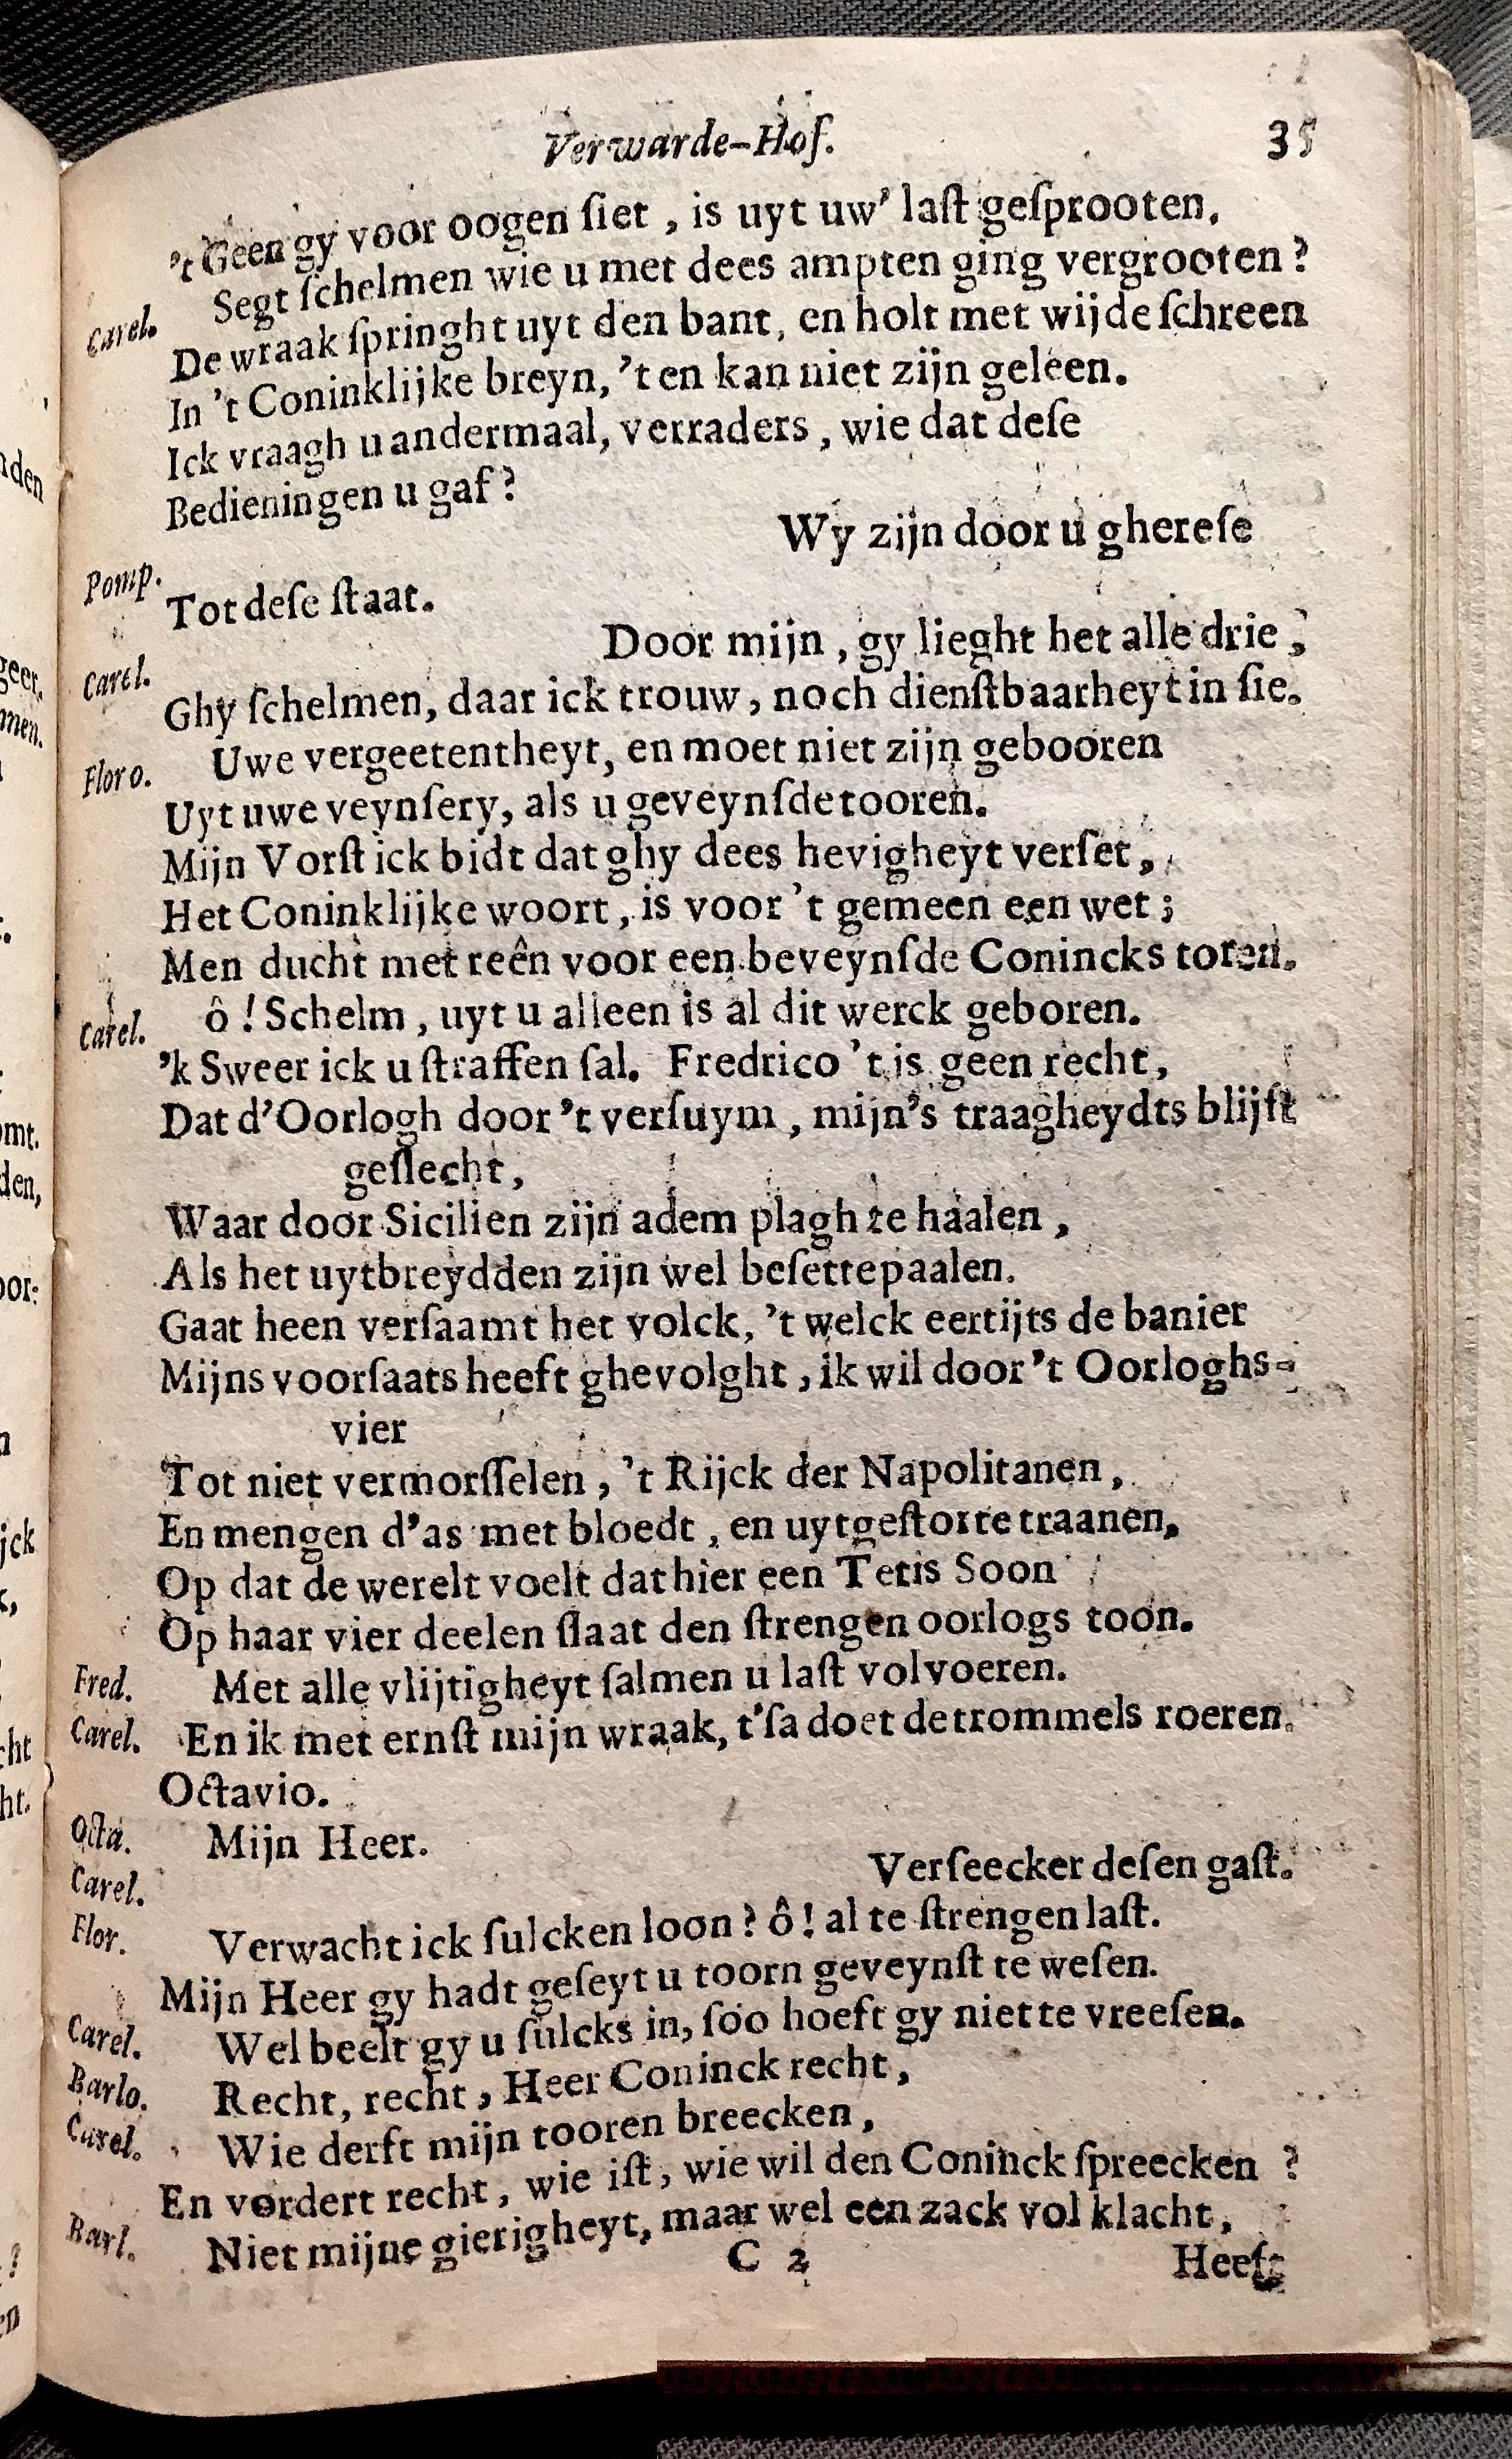 Verwarde-Hof. 35
't Geen gy voor oogen ſiet, is uyt uw' laſt geſprooten.
Carel. Segt ſchelmen wie u met dees ampten ging vergrooten?
De wraak ſpringht uyt den bant, en holt met wijde ſchreen
In 't Coninklijke breyn, 't en kan niet zijn geleen.
Ick vraagh u andermaal, verraders, wie dat deſe
Bedieningen u gaf?
Pomp. Wy zijn door u ghereſe
Tot deſe ſtaat.
Carel. Door mijn, gy lieght het alle drie,
Ghy ſchelmen, daar ick trouw, noch dienſtbaarheyt in ſie.
Floro. Uwe vergeetentheyt, en moet niet zijn gebooren
Uyt uwe veynſery, als u geveynſde tooren.
Mijn Vorſt ick bidt dat ghy dees hevigheyt verſet,
Het Coninklijke woort, is voor 't gemeen een wet;
Men ducht met reên voor een beveynſde Conincks toren.
Carel. ô! Schelm, uyt u alleen is al dit werck geboren.
'k Sweer ick u ſtraffen ſal. Fredrico 't is geen recht,
Dat d'Oorlogh door 't verſuym, mijn's traagheydts blijft
geſlecht,
Waar door Sicilien zijn adem plagh te haalen,
Als het uytbreydden zijn wel beſette paalen.
Gaat heen verſaamt het volck, 't welck eertijts de banier
Mijns voorſaats heeft ghevolght, ik wil door 't Oorloghs-
vier
Tot niet vermorſſelen, 't Rijck der Napolitanen,
En mengen d'as met bloedt, en uytgeſtorte traanen,
Op dat de werelt voelt dat hier een Tetis Soon
Op haar vier deelen ſlaat den ſtrengen oorlogs toon.
Fred. Met alle vlijtigheyt ſalmen u laſt volvoeren.
Carel. En ik met ernſt mijn wraak, t'ſa doet de trommels roeren.
Octavio.
Octa. Mijn Heer.
Carel. Verſeecker deſen gaſt.
Flor. Verwacht ick ſulcken loon? ô! al te ſtrengen laſt.
Mijn Heer gy hadt geſeyt u toorn geveynſt te weſen.
Carel. Wel beelt gy u ſulcks in, ſoo hoeft gy niet te vreeſen.
Barlo. Recht, recht, Heer Coninck recht,
Carel. Wie derft mijn tooren breecken,
En vordert recht, wie iſt, wie wil den Coninck ſpreecken?
Barl. Niet mijne gierigheyt, maar wel een zack vol klacht,
C 2 Heeft
nden
geer,
nnen.
omt.
den,
oor:
n
ijck
cht
ht.
?
en